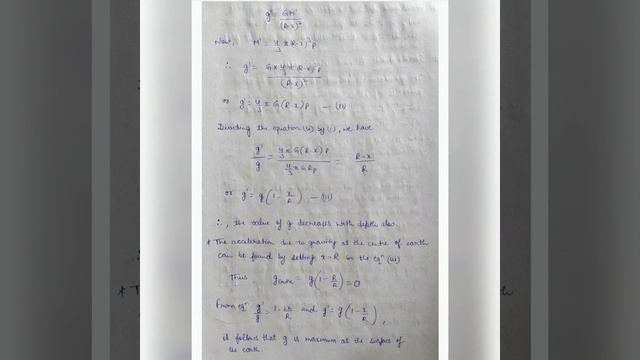 g' = GM' / (R-x)²
Now, M' = 4/3 π (R-x)³ρ
∴ g' = G × 4/3 π (R-x)³ρ / (R-x)²
or g' = 4/3 π G (R-x) ρ — (ii)
Dividing the equation (ii) by (i), we have
g'/g = 4/3 π G (R-x) ρ / 4/3 π G R ρ = R-x / R
or g' = g (1 - x/R) — (iii)
∴, the value of g decreases with depth also.
* The acceleration due to gravity at the centre of earth
can be found by setting x=R in the eqⁿ (iii)
Thus, g centre = g (1 - R/R) = 0
From eqⁿ g'/g = 1 - 2h/R and g' = g (1 - x/R),
it follows that g is maximum at the surface of
the earth.